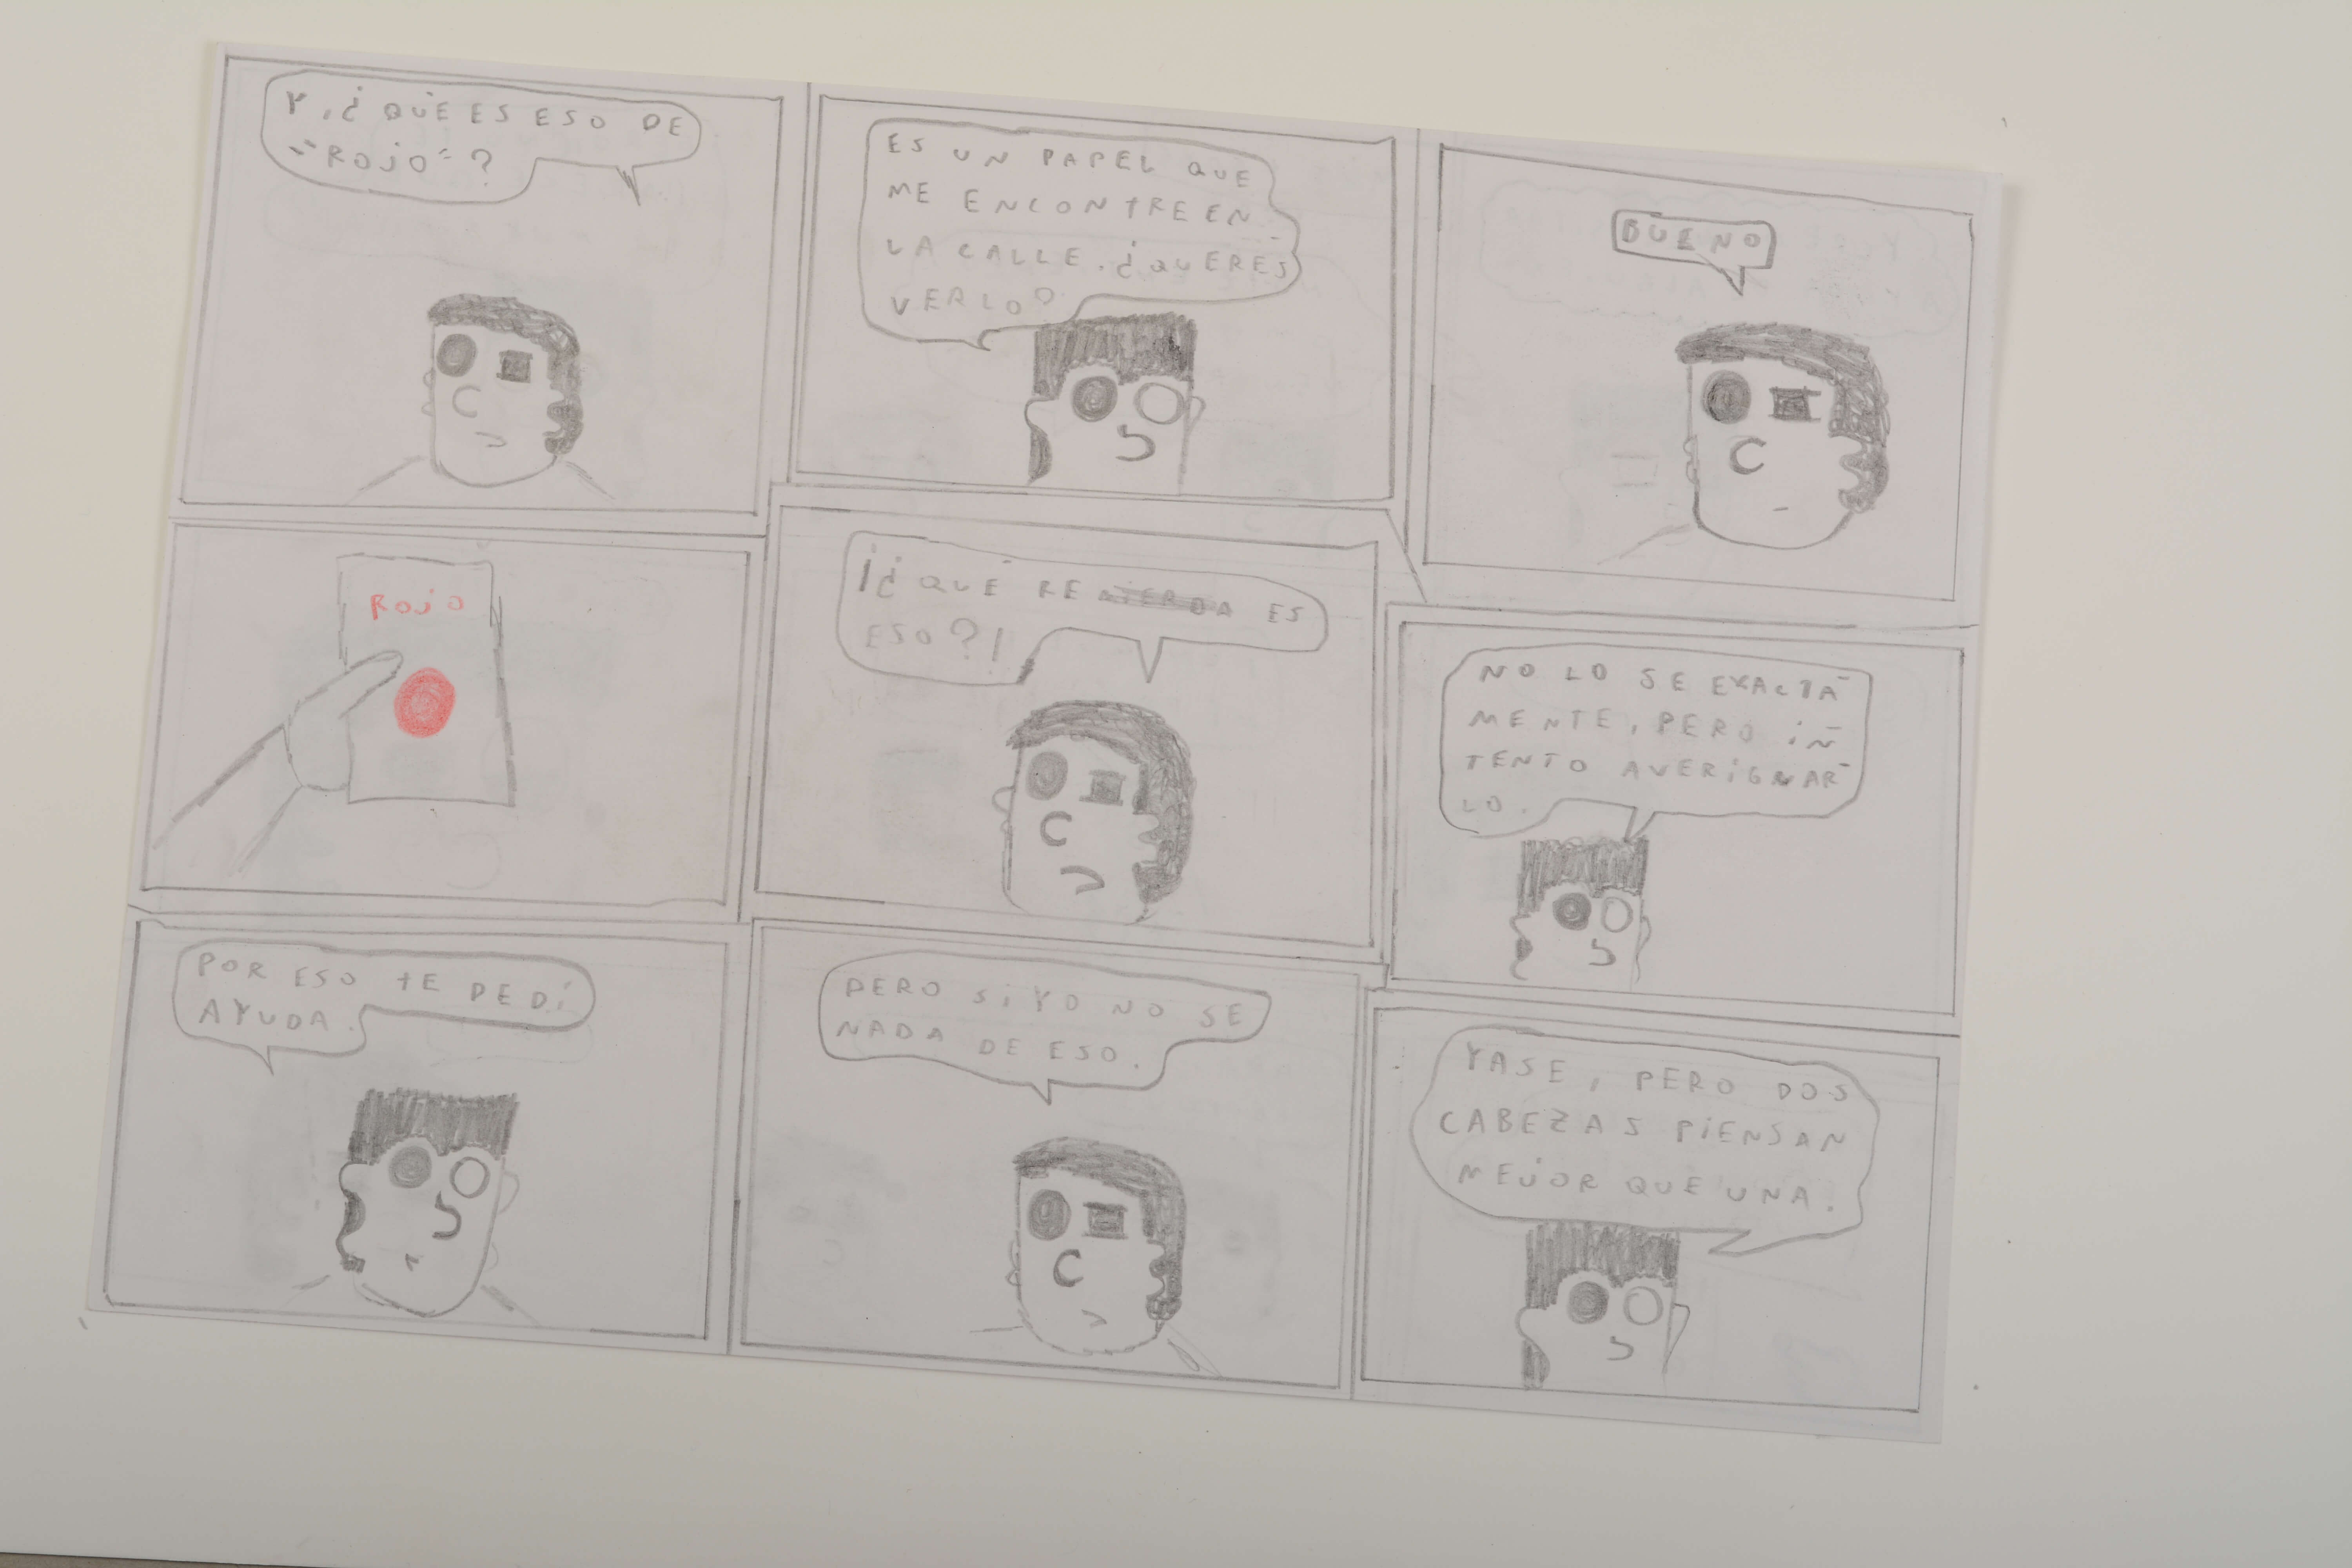 Y, ¿QUÉ ES ESO DE
"ROJO"?
ES UN PAPEL QUE
ME ENCONTRE EN
LA CALLE. ¿QUERES
VERLO?
BUENO
ROJO
¡¿QUÉ REMIERDA ES
ESO?!
NO LO SE EXACTA-
MENTE, PERO IN-
TENTO AVERIGUAR-
LO.
POR ESO TE PEDÍ
AYUDA.
PERO SI YO NO SE
NADA DE ESO.
YASE, PERO DOS
CABEZAS PIENSAN
MEJOR QUE UNA.